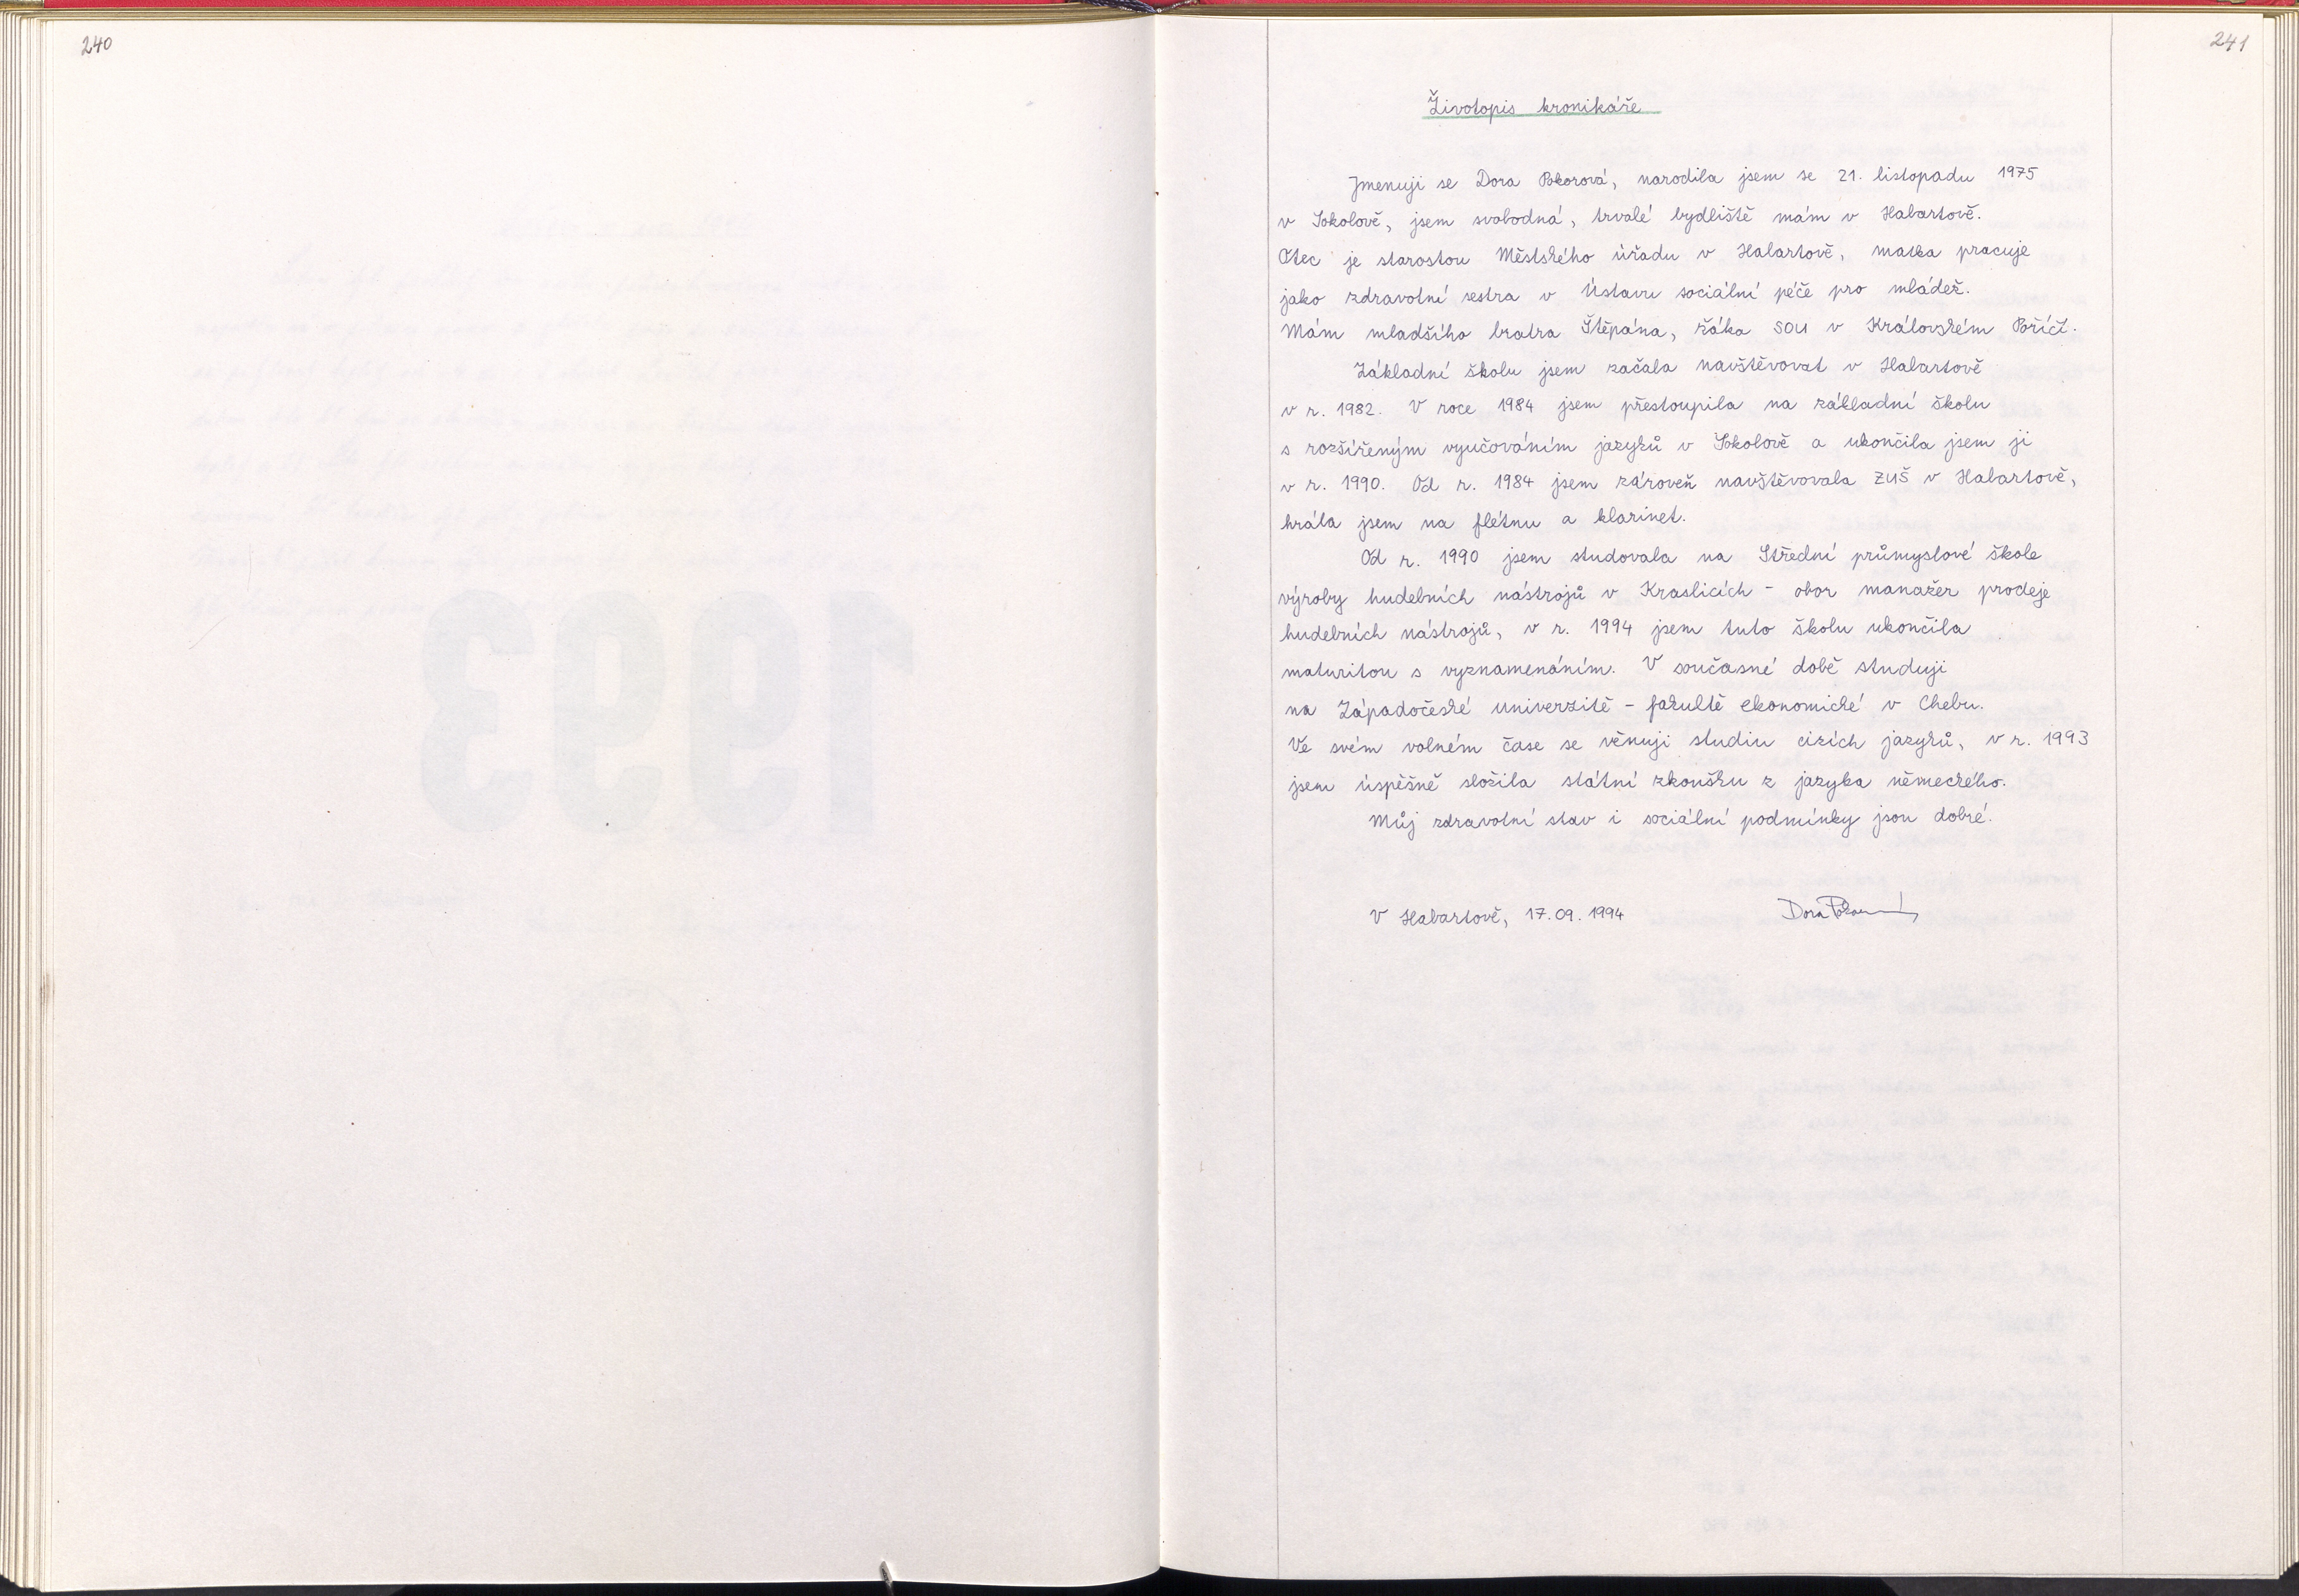 240
241
Životopis kronikáře
Jmenuji se Dora Pokorová, narodila jsem se 21. listopadu 1975
v Sokolově, jsem svobodná, trvalé bydliště mám v Habartově.
Otec je starostou Městského úřadu v Habartově, matka pracuje
jako zdravotní sestra v Ústavu sociální péče pro mládež.
Mám mladšího bratra Štěpána, žáka SOU v Královském Poříčí.
Základní školu jsem začala navštěvovat v Habartově
v r. 1982. V roce 1984 jsem přestoupila na základní školu
s rozšířeným vyučováním jazyků v Sokolově a ukončila jsem ji
v r. 1990. Od r. 1984 jsem zároveň navštěvovala ZUŠ v Habartově,
hrála jsem na flétnu a klarinet.
Od r. 1990 jsem studovala na Střední průmyslové škole
výroby hudebních nástrojů v Kraslicích - obor manažer prodeje
hudebních nástrojů, v r. 1994 jsem tuto školu ukončila
maturitou s vyznamenáním. V současné době studuji
na Západočeské univerzitě - fakultě ekonomické v Chebu.
Ve svém volném čase se věnuji studiu cizích jazyků, v r. 1993
jsem úspěšně složila státní zkoušku z jazyka německého.
Můj zdravotní stav i sociální podmínky jsou dobré.
V Habartově, 17.09.1994 Dora Pokorová
1993